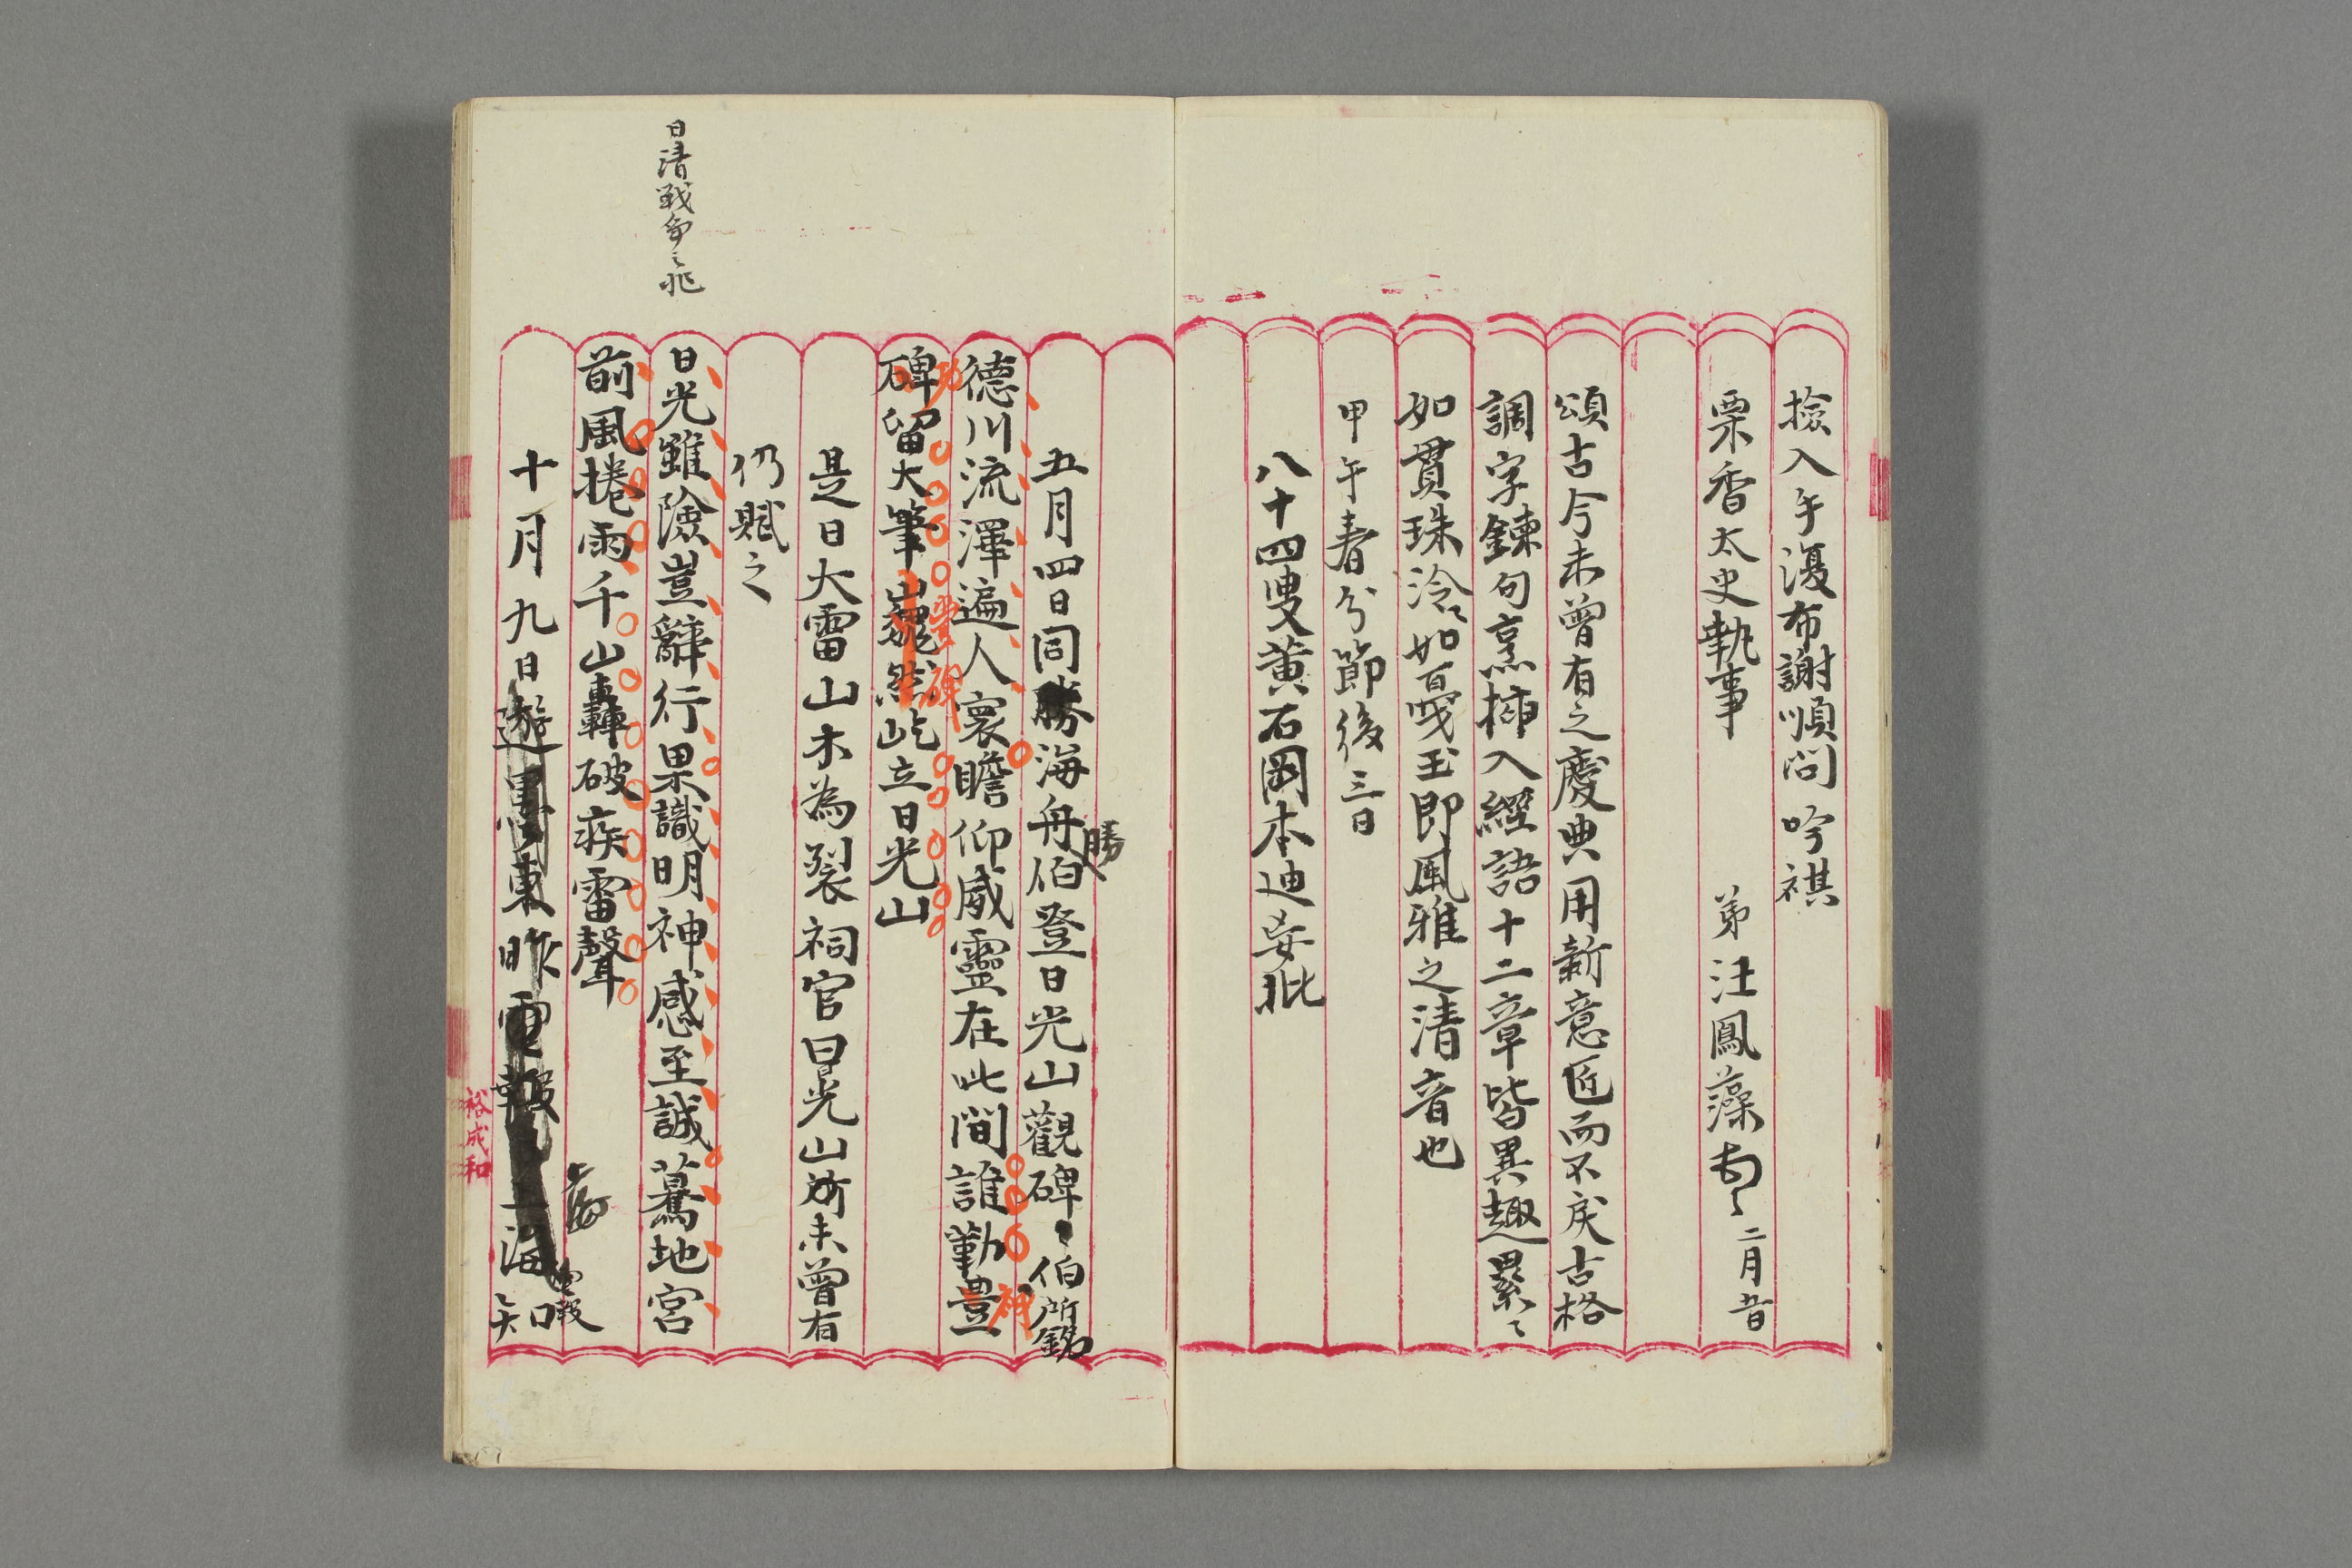 撿入手復布謝順問吟祺
栗香太史執事　弟汪鳳藻頓　二月五日
頌古今未曾有之慶典用新意匠而不戾古格
調字鍊句烹插入經語十二章皆異趣累〻
如貫珠泠〻如戛玉即風雅之清音也
甲午春分節後三日
八十四叟黄石岡本迪妄批
五月四日同勝海舟伯登日光山觀碑〻伯所銘
勝
德川流澤遍人寰瞻仰威靈在此間誰勤豊
碑留大筆巍然屹立日光山
神
功
豊碑
是日大雷山木為裂祠官曰日光山所未曾有
仍賦之
日清戦争之兆
日光雖險豈辭行果識明神感至誠驀地宮
前風捲雨千山轟破疾雷聲
十月九日遊東昨電報上海知
上海
電報
裕成和